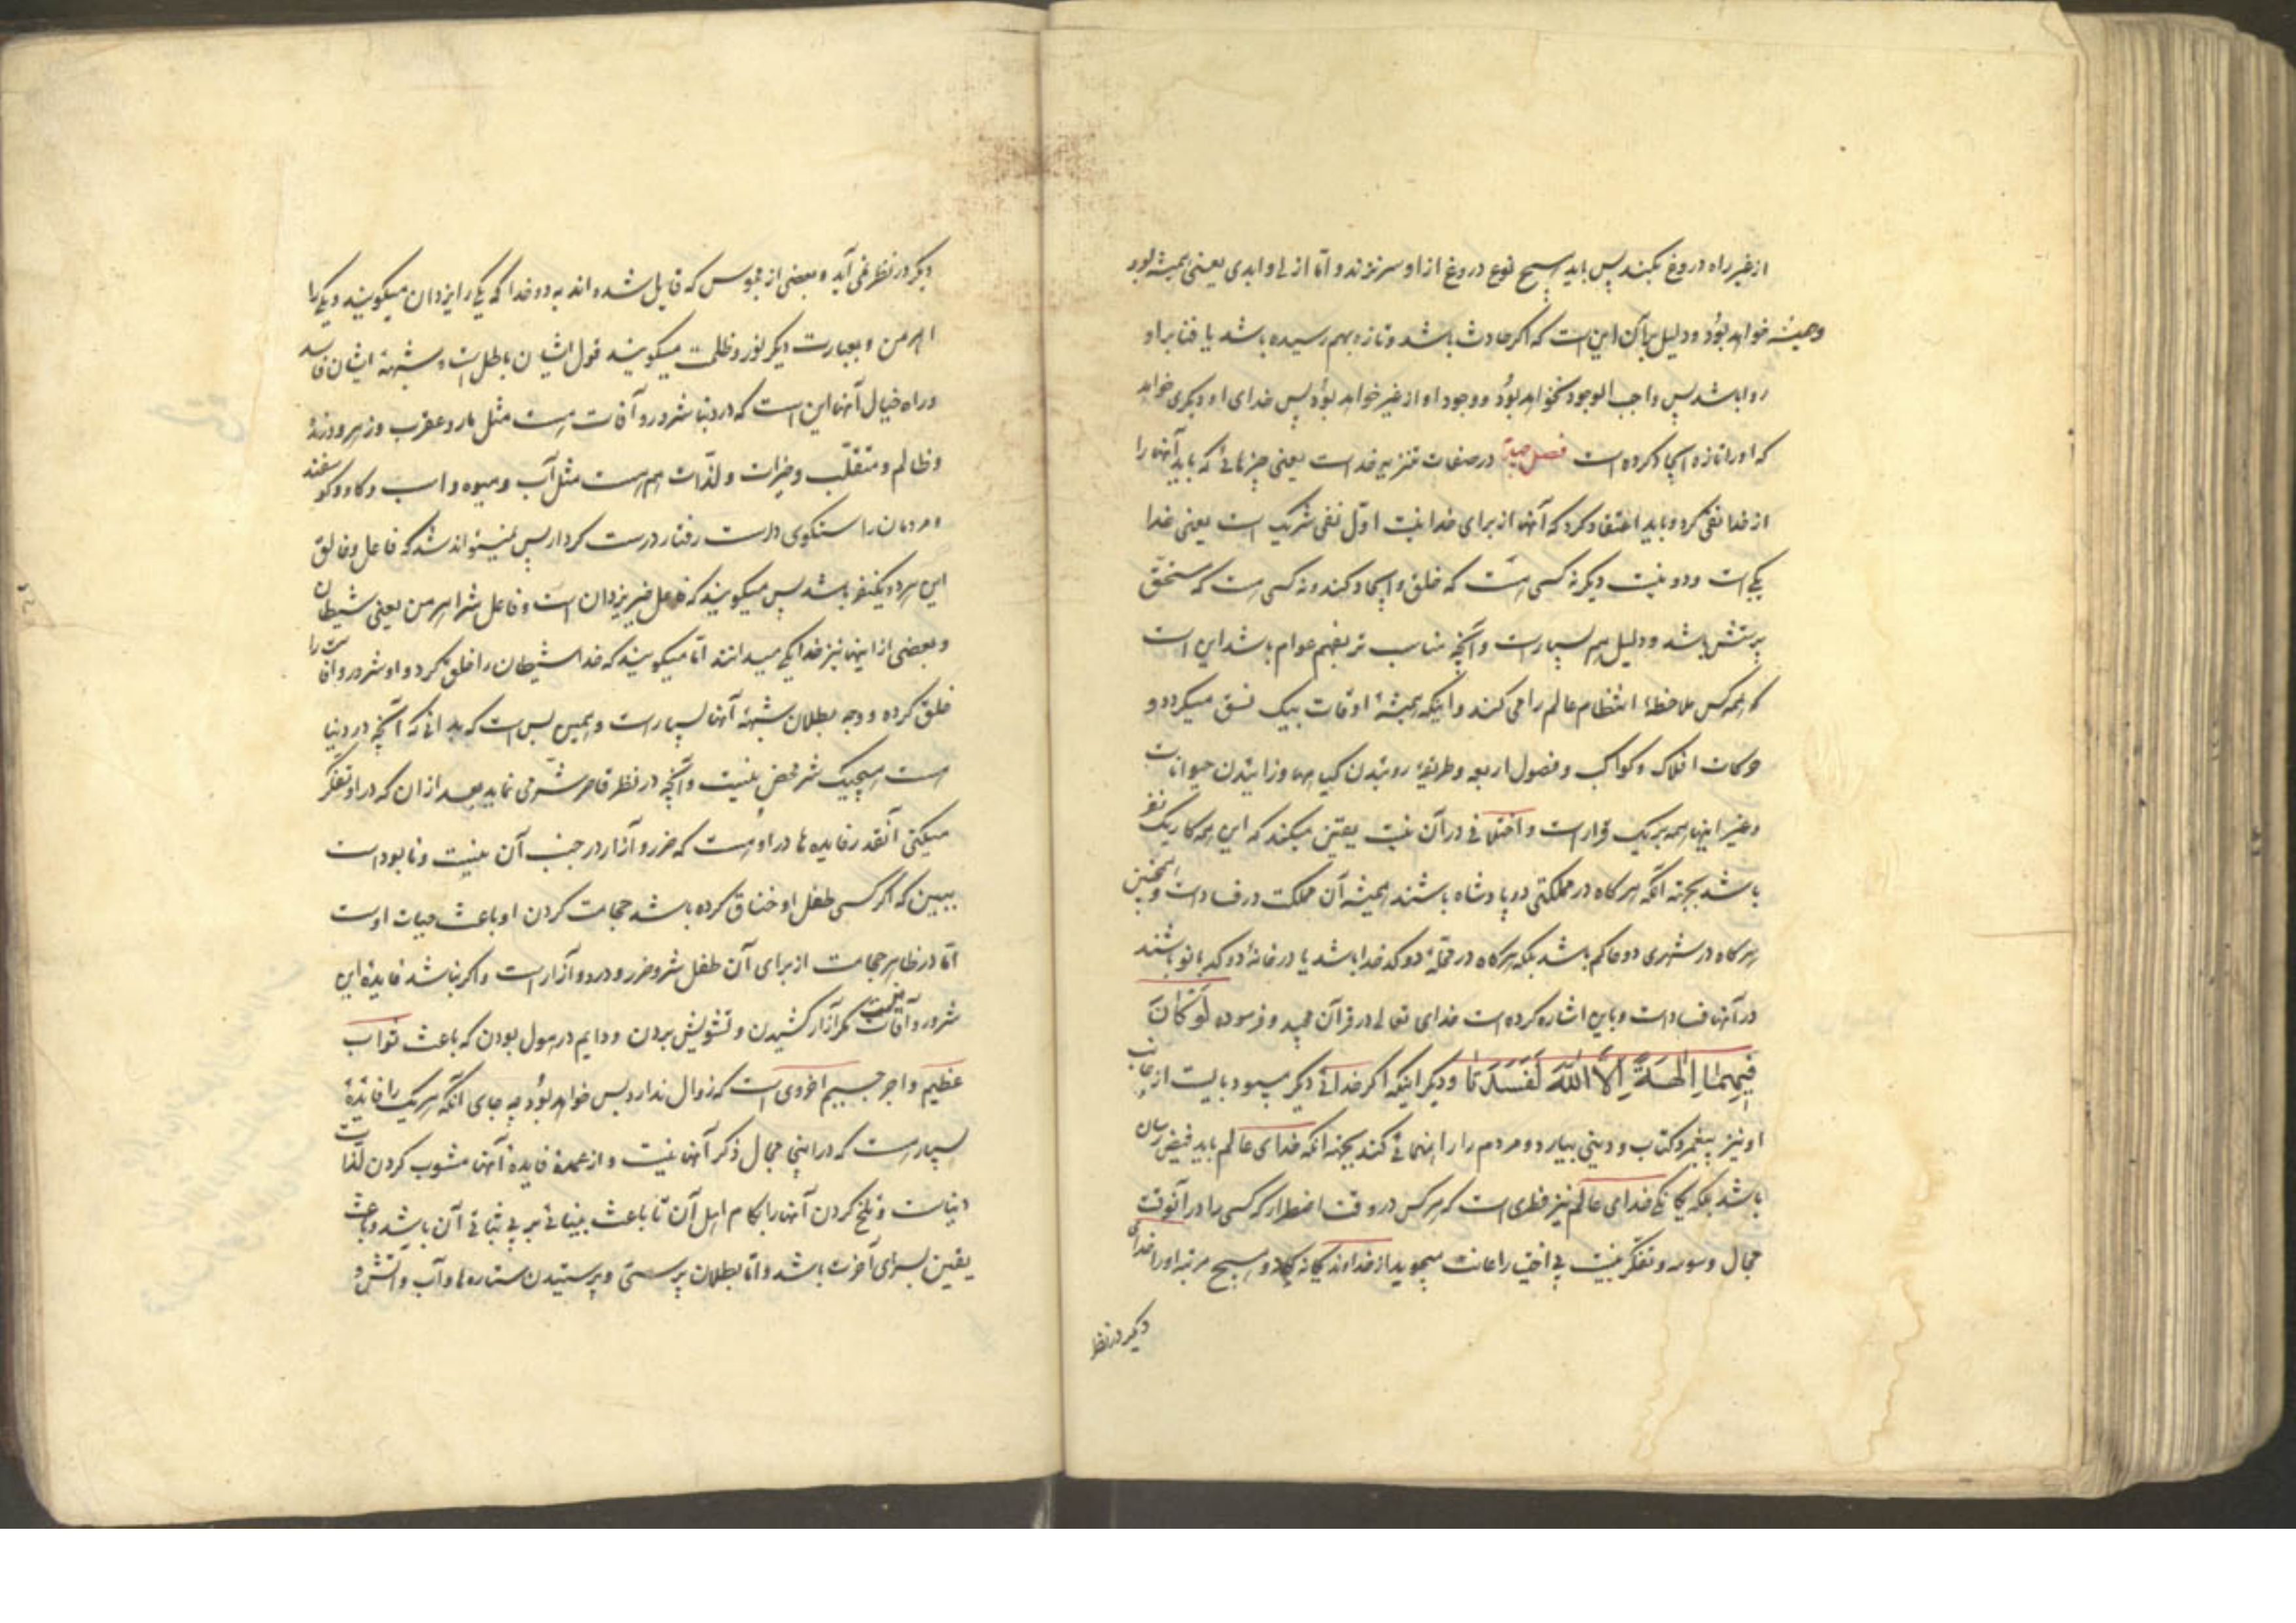 از غیر راه دروغ بکنند پس باید هیچ نوع دروغ از او سر نزند و اما ازلی و ابدی یعنی همیشه بود
و همیشه خواهد بود و دلیل بر آن این است که اگر حادث باشد و تازه بهم رسیده باشد یا فنا بر او
روا باشد پس واجب الوجود نخواهد بود و وجود او از غیر خواهد بود پس خدای او دیگری خواهد
که او را تازه ایجاد کرده است فصل در صفات تنزیه خداست یعنی چیزهائی که باید آنها را
از خدا نفی کرد و باید اعتقاد کرد که آنها از برای خدا نیست اول نفی شریک است یعنی خدا
یکی است و دو نیست دیگر نه کسی هست که خلق و ایجاد کند و نه کسی هست که مستحق
پرستش باشد و دلیل هم بسیار است و آنچه مناسب تر بفهم عوام باشد این است
که همه کس ملاحظهٔ انتظام عالم را می کنند و اینکه همیشهٔ اوقات بیک نسق میگردد و
حرکات افلاک و کواکب و فصول اربعه و طریقهٔ روئیدن گیاهها و زائیدن حیوانات
و غیر اینها همه بر یک قرار است و اختلافی در آن نیست یقین میکند که این همه کار یک نفر
باشد بجهته آنکه هر گاه در مملکتی دو پادشاه باشند همیشه آن مملکت در فساد است و همچنین
هر گاه در شهری دو حاکم باشد بلکه هر گاه در محلهٔ دو کدخدا باشد یا در خانهٔ دو کدبانو باشند
در آنها فساد است و باین اشاره کرده است خدای تعالی در قرآن مجید و فرموده لَوْ كَانَ
فِيهِمَا اٰلِهَةٌ اِلَّا اللّٰهُ لَفَسَدَتَا و دیگر اینکه اگر خدائی دیگر میبود بایست از جانب
او نیز پیغمبر و کتاب و دینی بیاید و مردم را راهنمائی کند بجهته آنکه خدای عالم باید فیض رسان
باشد بلکه یگانگی خدای عالم نیز فطری است که هر کس در وقت اضطرار که کسی را در آنوقت
مجال وسوسه و تفکر نیست بی اختیار اعانت میجوید از خداوند یگانه و هیچ مرتبه او را خدای
دیگر در نظر
دیگر در نظر نمی آید و بعضی از مجوس که قایل شده اند به دو خدا که یکی را یزدان میگویند و یکی را
اهرمن و بعبارت دیگر نور و ظلمت میگویند قول ایشان باطل است و شبههٔ ایشان فاسد
و راه خیال آنها این است که در دنیا شرور و آفات هست مثل مار و عقرب و زهر و درنده
و ظالم و متقلب و خیرات و لذّات هم هست مثل آب و میوه و اسب و گاو و گوسفند
و مردمان راستگوی درست رفتار درست کردار پس نمیتواند شد که فاعل و خالق
این هر دو یکنفر باشد پس میگویند که فاعل خیر یزدان است و فاعل شر اهرمن یعنی شیطان
و بعضی از اینها نیز خدا یکی میدانند اما میگویند که خدا شیطان را خلق کرد و او شرور و آفات را
خلق کرده و وجه بطلان شبههٔ آنها بسیار است و همین بس است که بدانی که آنچه در دنیا
است هیچیک شر محض نیست و آنچه در نظر قاصر شر می نماید بعد از آن که در او تفکر
میکنی آنقدر فایده ها در او هست که ضرر و آزار در جنب آن نیست و نابود است
ببین که اگر کسی طفل او خناق کرده باشد حجامت کردن او باعث حیات اوست
اما در ظاهر حجامت از برای آن طفل شر و ضرر و درد و آزار است و اگر نباشد فایدهٔ این
شرور و آفات مگر آزار کشیدن و تشویش بردن و دایم در هول بودن که باعث ثواب
عظیم و اجر جسیم اخروی است که زوال ندارد بس خواهد بود چه جای آنکه هر یک را فایدهٔ
بسیار هست که در اینجا مجال ذکر آنها نیست و از عمدهٔ فایدهٔ آنها مشوب کردن لذات
دنیاست و تلخ کردن آنها را بکام اهل آن تا باعث بینائی بر بی ثباتی آن باشد و باعث
یقین بسرای آخرت باشد و اما بطلان پرستی و پرستیدن ستاره ها و آب و آتش و